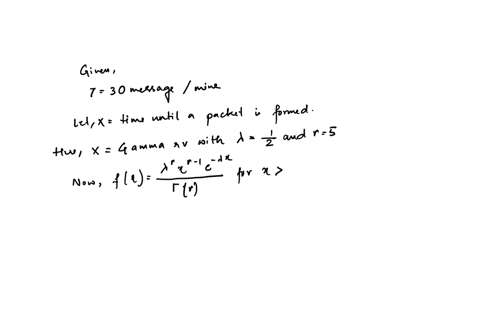 Given,
7 = 30 message / mine
Let, x = time until a packet is formed.
Here, X = Gamma rv with λ = 1/2 and r = 5
Now, f(x) = λ^r x^{r-1} e^{-λx} / Γ(r) for x >